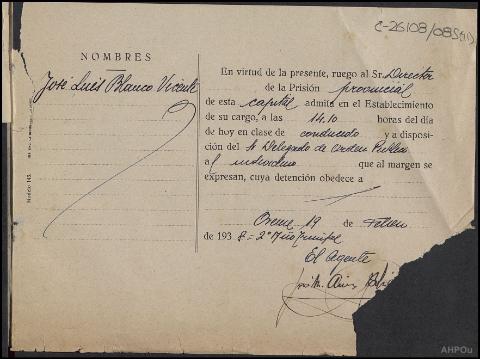 C-26108/085(1)
NOMBRES
José Luis Blanco Vicente
En virtud de la presente, ruego al Sr. Director
de la Prisión provincial
de esta capital admita en el Establecimiento
de su cargo, a las 14,10 horas del día
de hoy en clase de conducido y a disposi-
ción del Sr Delegado de Orden Publico
a l individuo que al margen se
expresan, cuya detención obedece a
Orense 19 de
de 193 8 = 2º Año Triunfal
El Agente
José M.
Modelo 143.
AHPOu